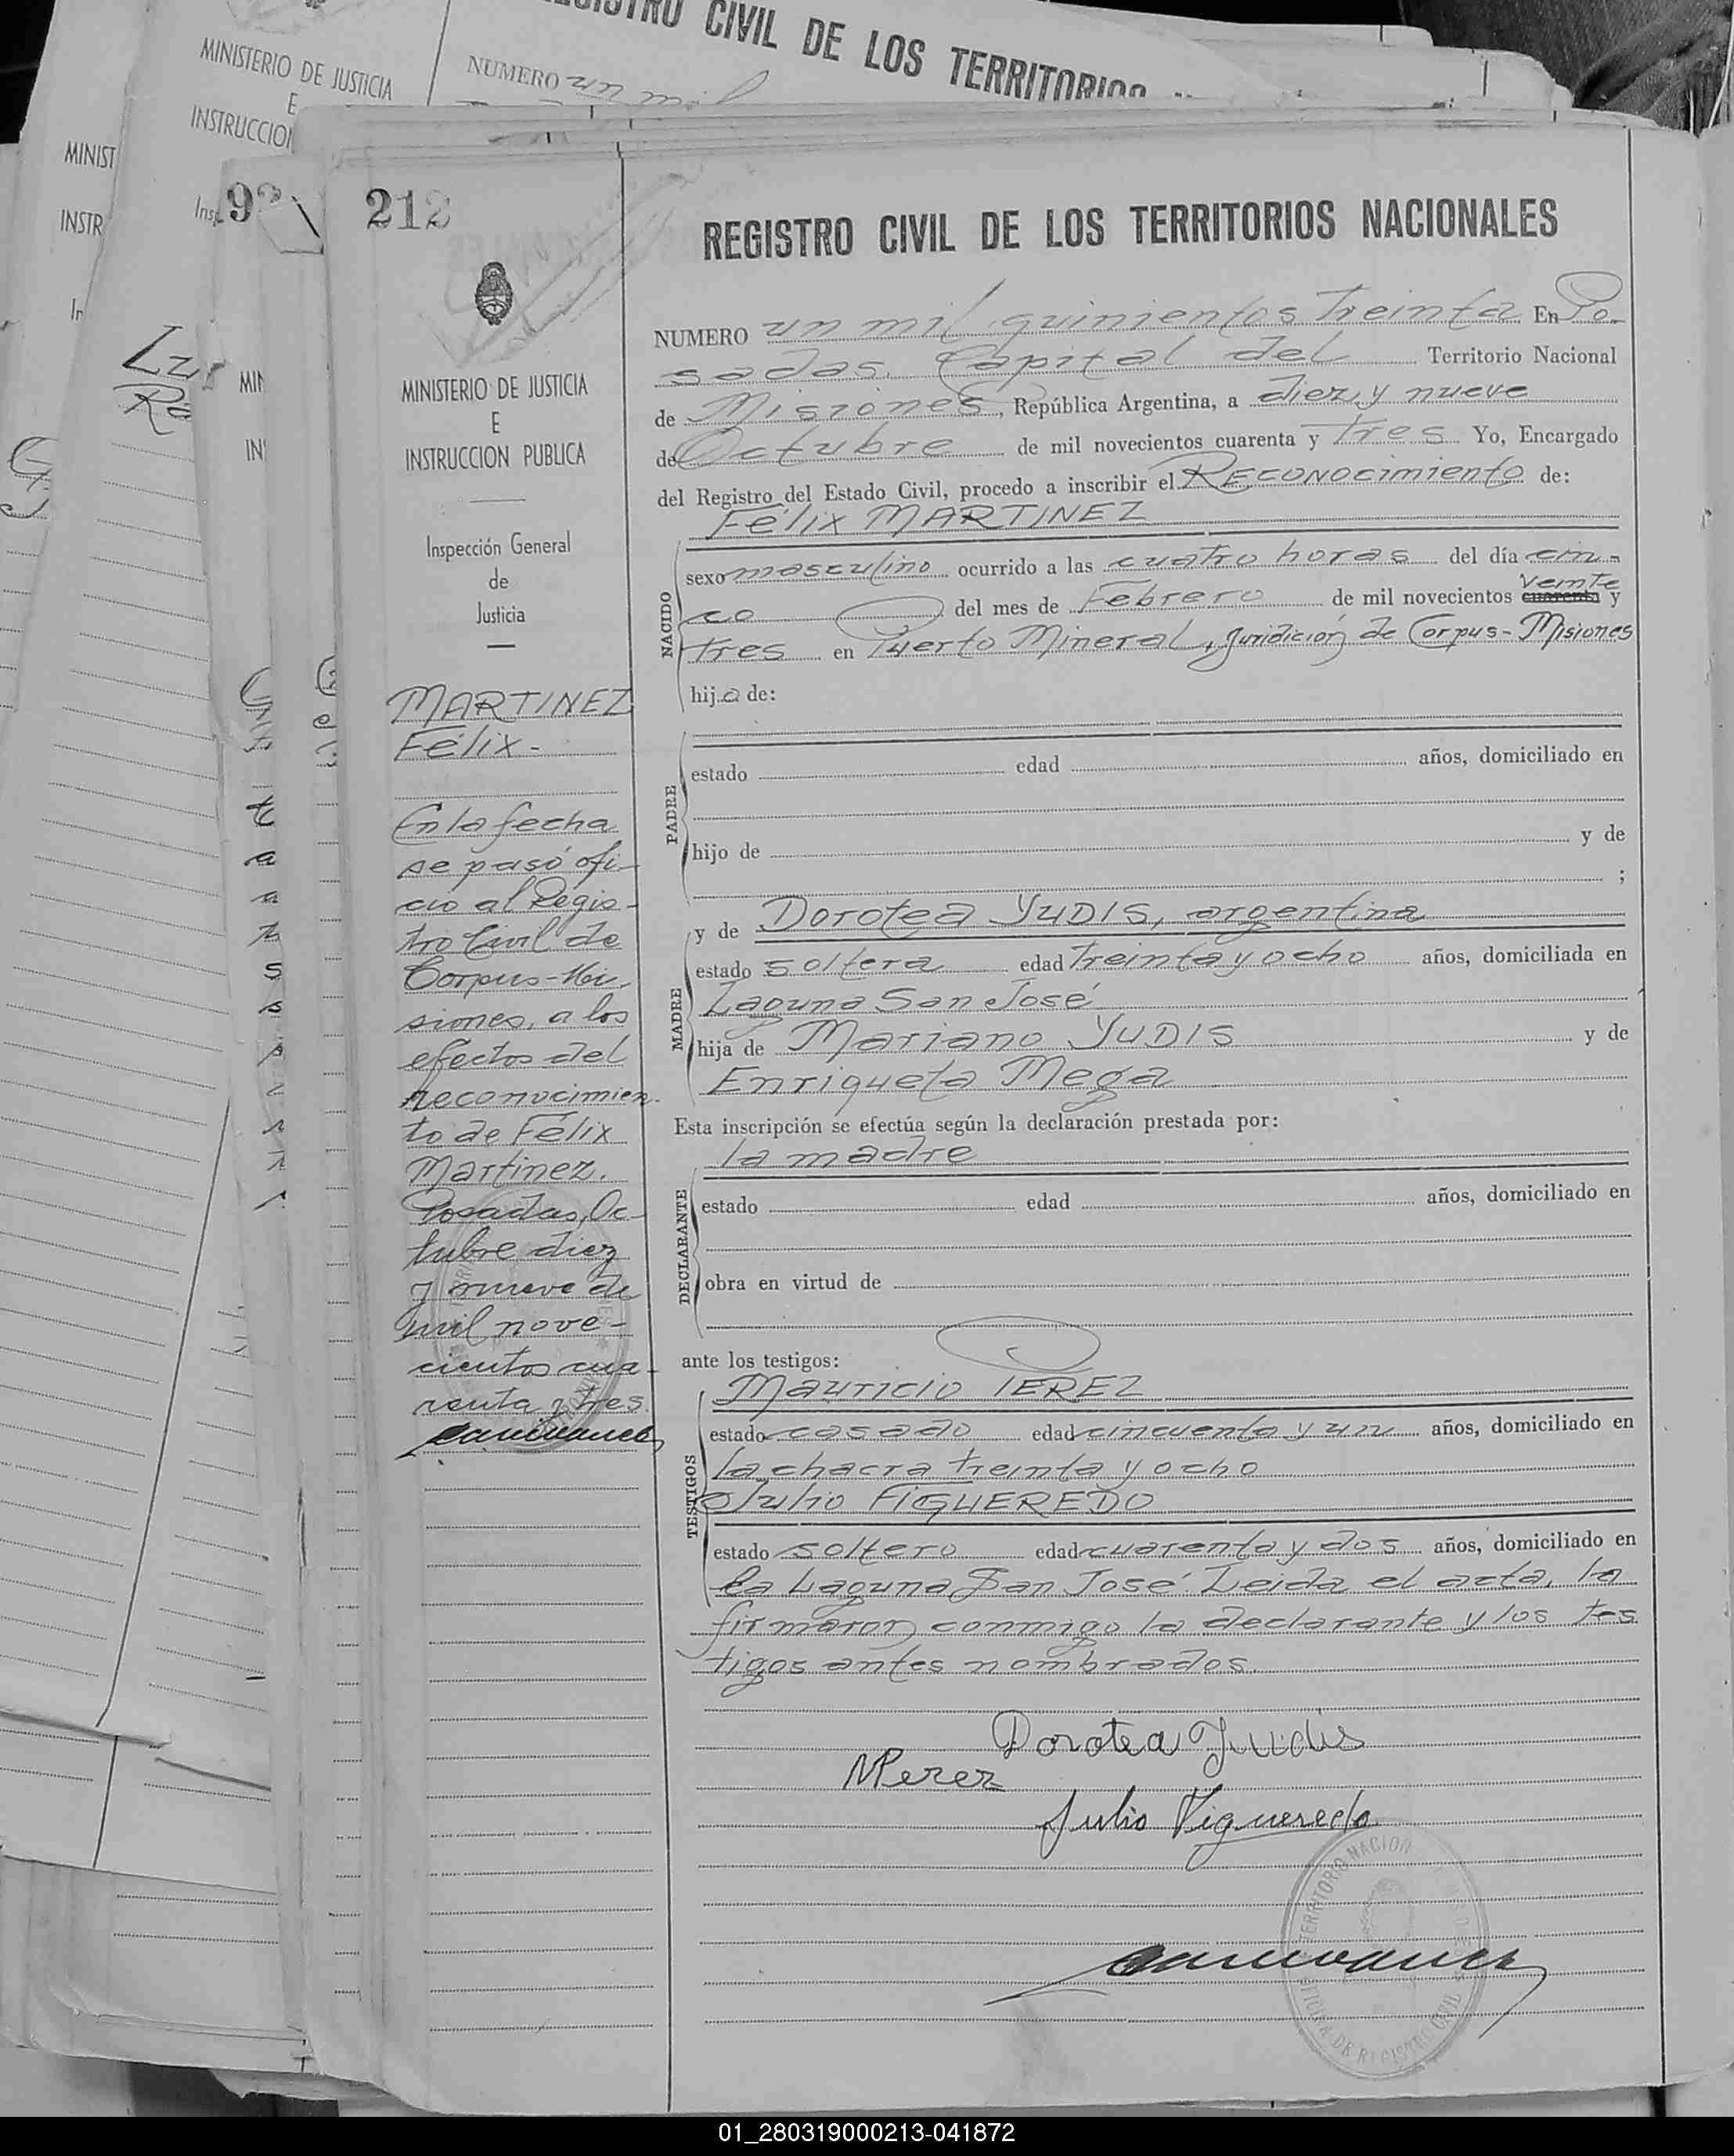 REGISTRO CIVIL DE LOS TERRITORIOS
MINISTERIO DE JUSTICIA
E
INSTRUCCION
NUMERO un mil
MINIST
INSTR
Insp
In
Luis
MIN
IN
212
MINISTERIO DE JUSTICIA
E
INSTRUCCION PUBLICA
Inspección General
de
Justicia
MARTINEZ
Félix-
En la fecha
se pasó ofi-
cio al Regis-
tro Civil de
Corpus-Mi-
siones, a los
efectos del
reconocimien-
to de Félix
Martinez.
Posadas, Oc-
tubre diez
y nueve de
mil nove-
cientos cua-
renta y tres.
REGISTRO CIVIL DE LOS TERRITORIOS NACIONALES
NUMERO un mil quinientos treinta En Po-
sadas, Capital del Territorio Nacional
de Misiones, República Argentina, a diez y nueve
de Octubre de mil novecientos cuarenta y tres Yo, Encargado
del Registro del Estado Civil, procedo a inscribir el RECONOCIMIENTO de:
Félix MARTINEZ
NACIDO
sexo masculino ocurrido a las cuatro horas del día cin-
veinte
co del mes de Febrero de mil novecientos cuarenta y
tres en Puerto Mineral, Juridición de Corpus-Misiones
hijo de:
PADRE
estado edad años, domiciliado en
hijo de y de
;
MADRE
y de Dorotea YUDIS, argentina
estado soltera edad treinta y ocho años, domiciliada en
Laguna San José
hija de Mariano YUDIS y de
Enriqueta Mega
Esta inscripción se efectúa según la declaración prestada por:
la madre
DECLARANTE
estado edad años, domiciliado en
obra en virtud de
ante los testigos:
TESTIGOS
Mauricio PEREZ
estado casado edad cincuenta y un años, domiciliado en
la chacra treinta y ocho
Julio FIGUEREDO
estado soltero edad cuarenta y dos años, domiciliado en
la Laguna San José. Leida el acta, la
firmaron conmigo la declarante y los tes
tigos antes nombrados.
Dorotea Yudis
MPerez
Julio Figueredo
TERRITORIO NACION
DE REGISTRO CIVIL
01_280319000213-041872